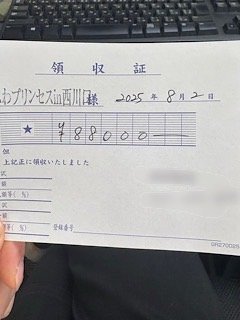 領収証
おプリンセスin西川口様 2025年8月2日
★ ¥88000—
但
上記正に領収いたしました
訳
額
額等( %)
訳
額
額等( %)
登録番号
GR270025